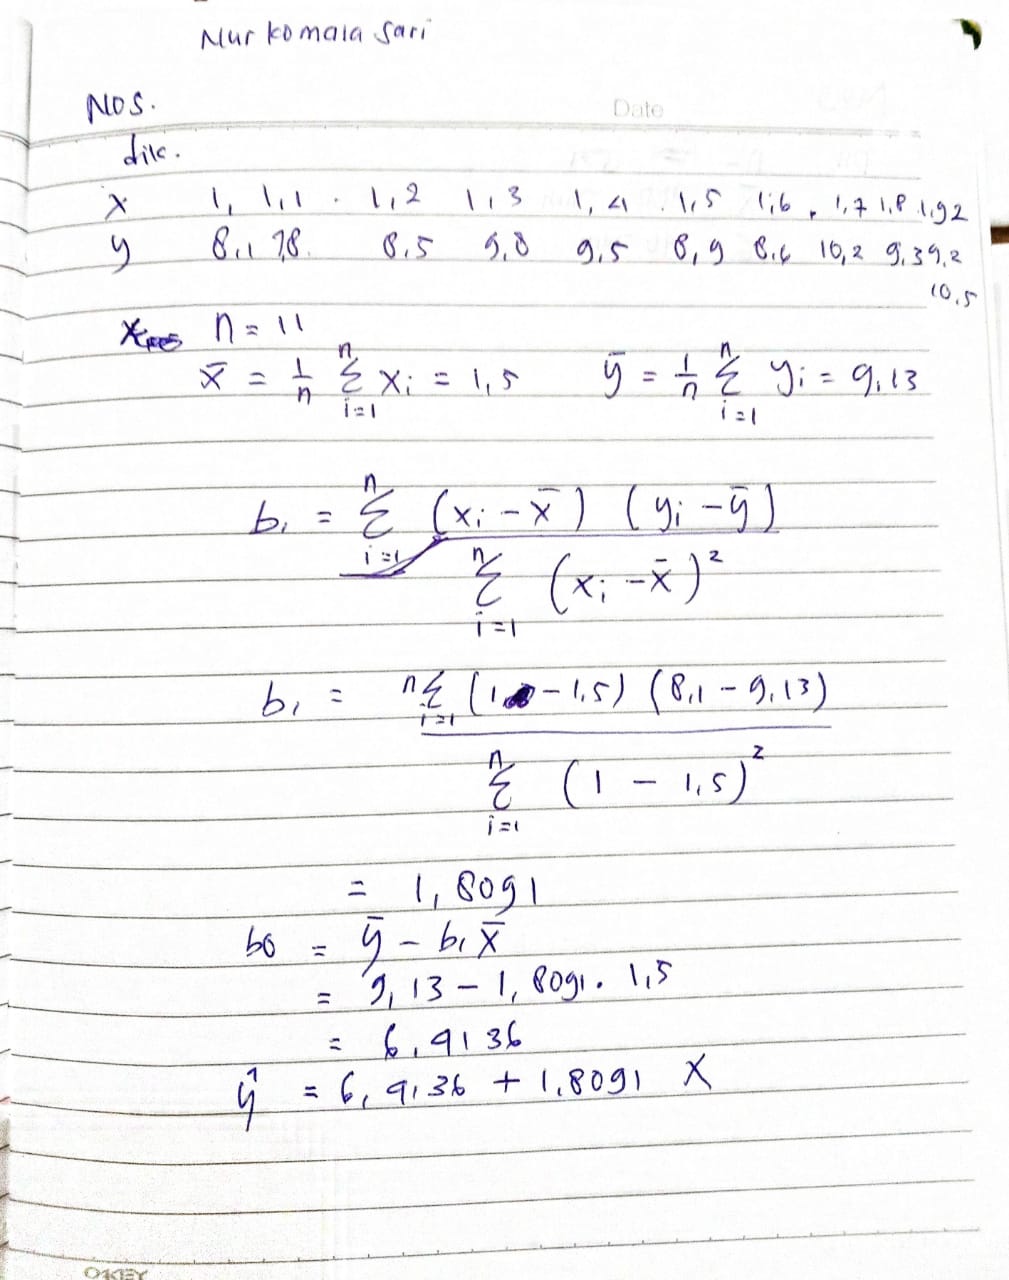 Nur komala sari
NO5.
Date
dik.
x 1, 1,1 . 1,2 1,3 1,4 . 1,5 1,6 , 1,7 1,8 1,9 2
y 8,1 7,8. 8,5 9,8 9,5 8,9 8,6 10,2 9,3 9,2
10,5
n = 11
x̄ = 1/n n Σ i=1 xi = 1,5 ȳ = 1/n n Σ i=1 yi = 9,13
b1 = n Σ i=1 (xi - x̄) (yi - ȳ)
n Σ i=1 (xi - x̄)²
b1 = n Σ i=1 (1 - 1,5) (8,1 - 9,13)
n Σ i=1 (1 - 1,5)²
= 1,8091
b0 = ȳ - b1 x̄
= 9,13 - 1,8091. 1,5
= 6,9136
ŷ = 6,9136 + 1,8091 X
OKEY